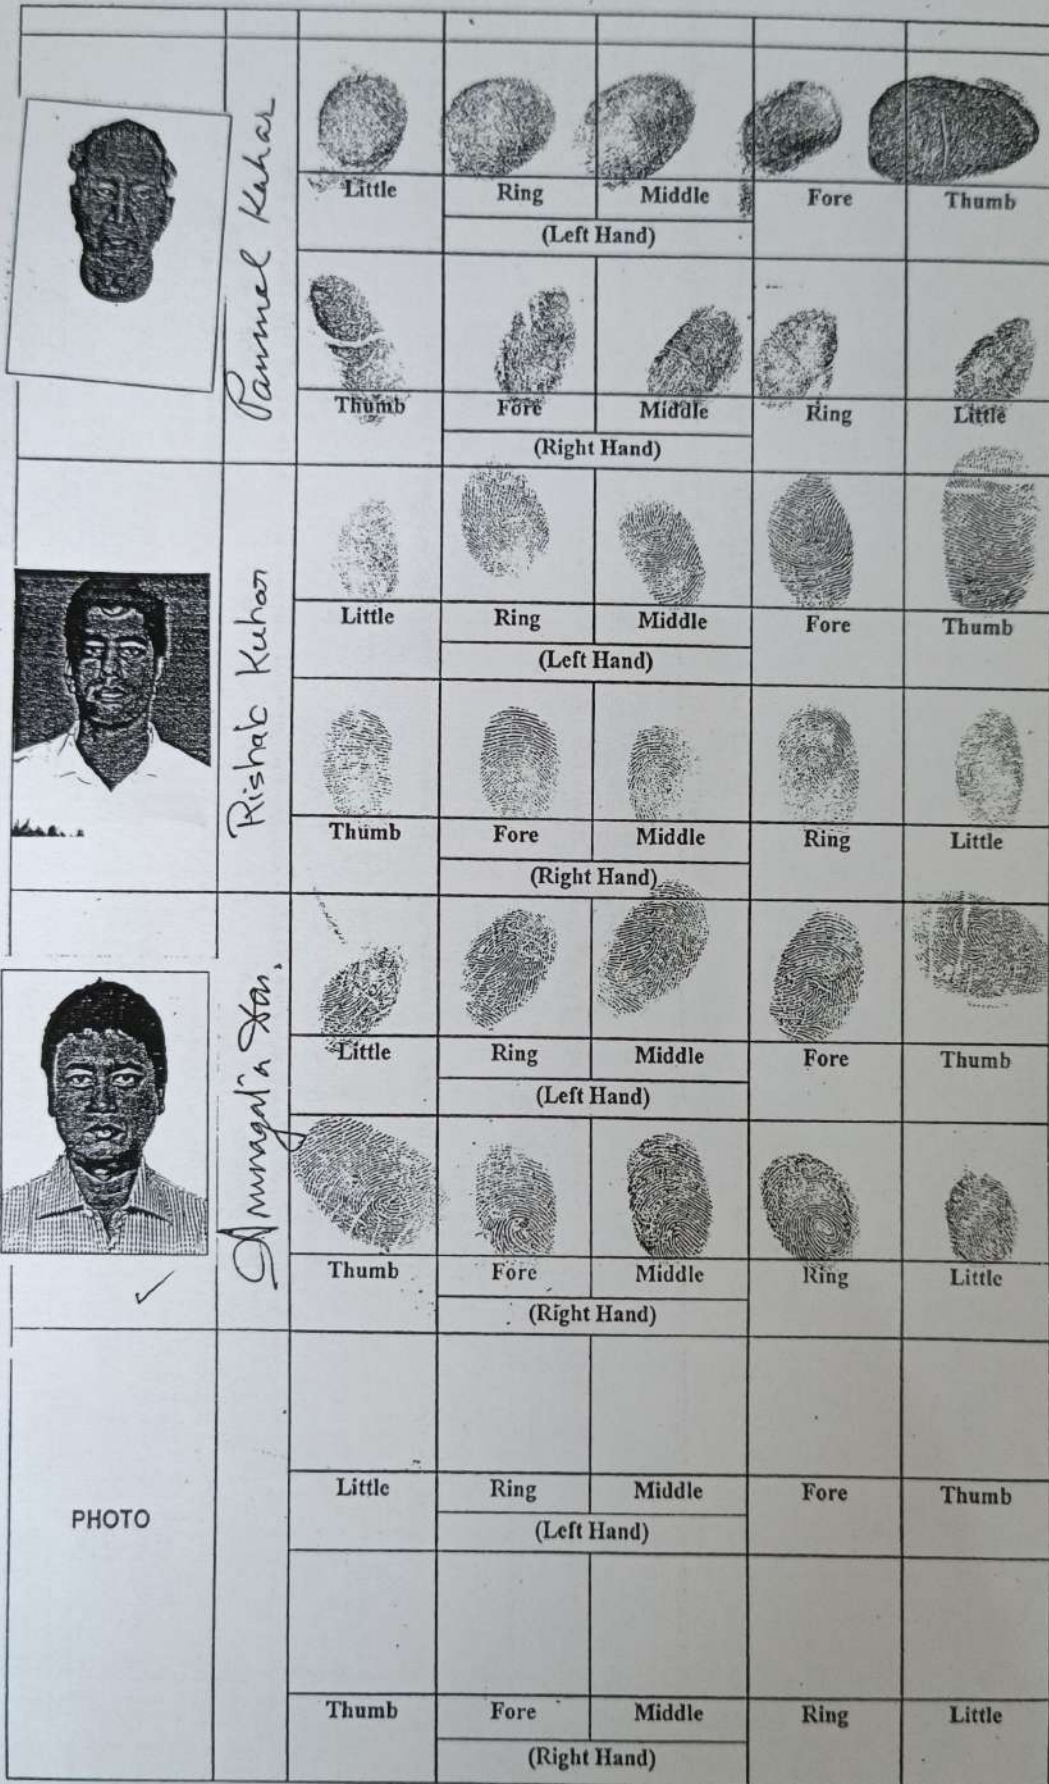 Pannal Kahar
Little Ring Middle Fore Thumb
(Left Hand)
Thumb Fore Middle Ring Little
(Right Hand)
Rishab Kuhar
Little Ring Middle Fore Thumb
(Left Hand)
Thumb Fore Middle Ring Little
(Right Hand)
Little Ring Middle Fore Thumb
(Left Hand)
Thumb Fore Middle Ring Little
(Right Hand)
PHOTO
Little Ring Middle Fore Thumb
(Left Hand)
Thumb Fore Middle Ring Little
(Right Hand)